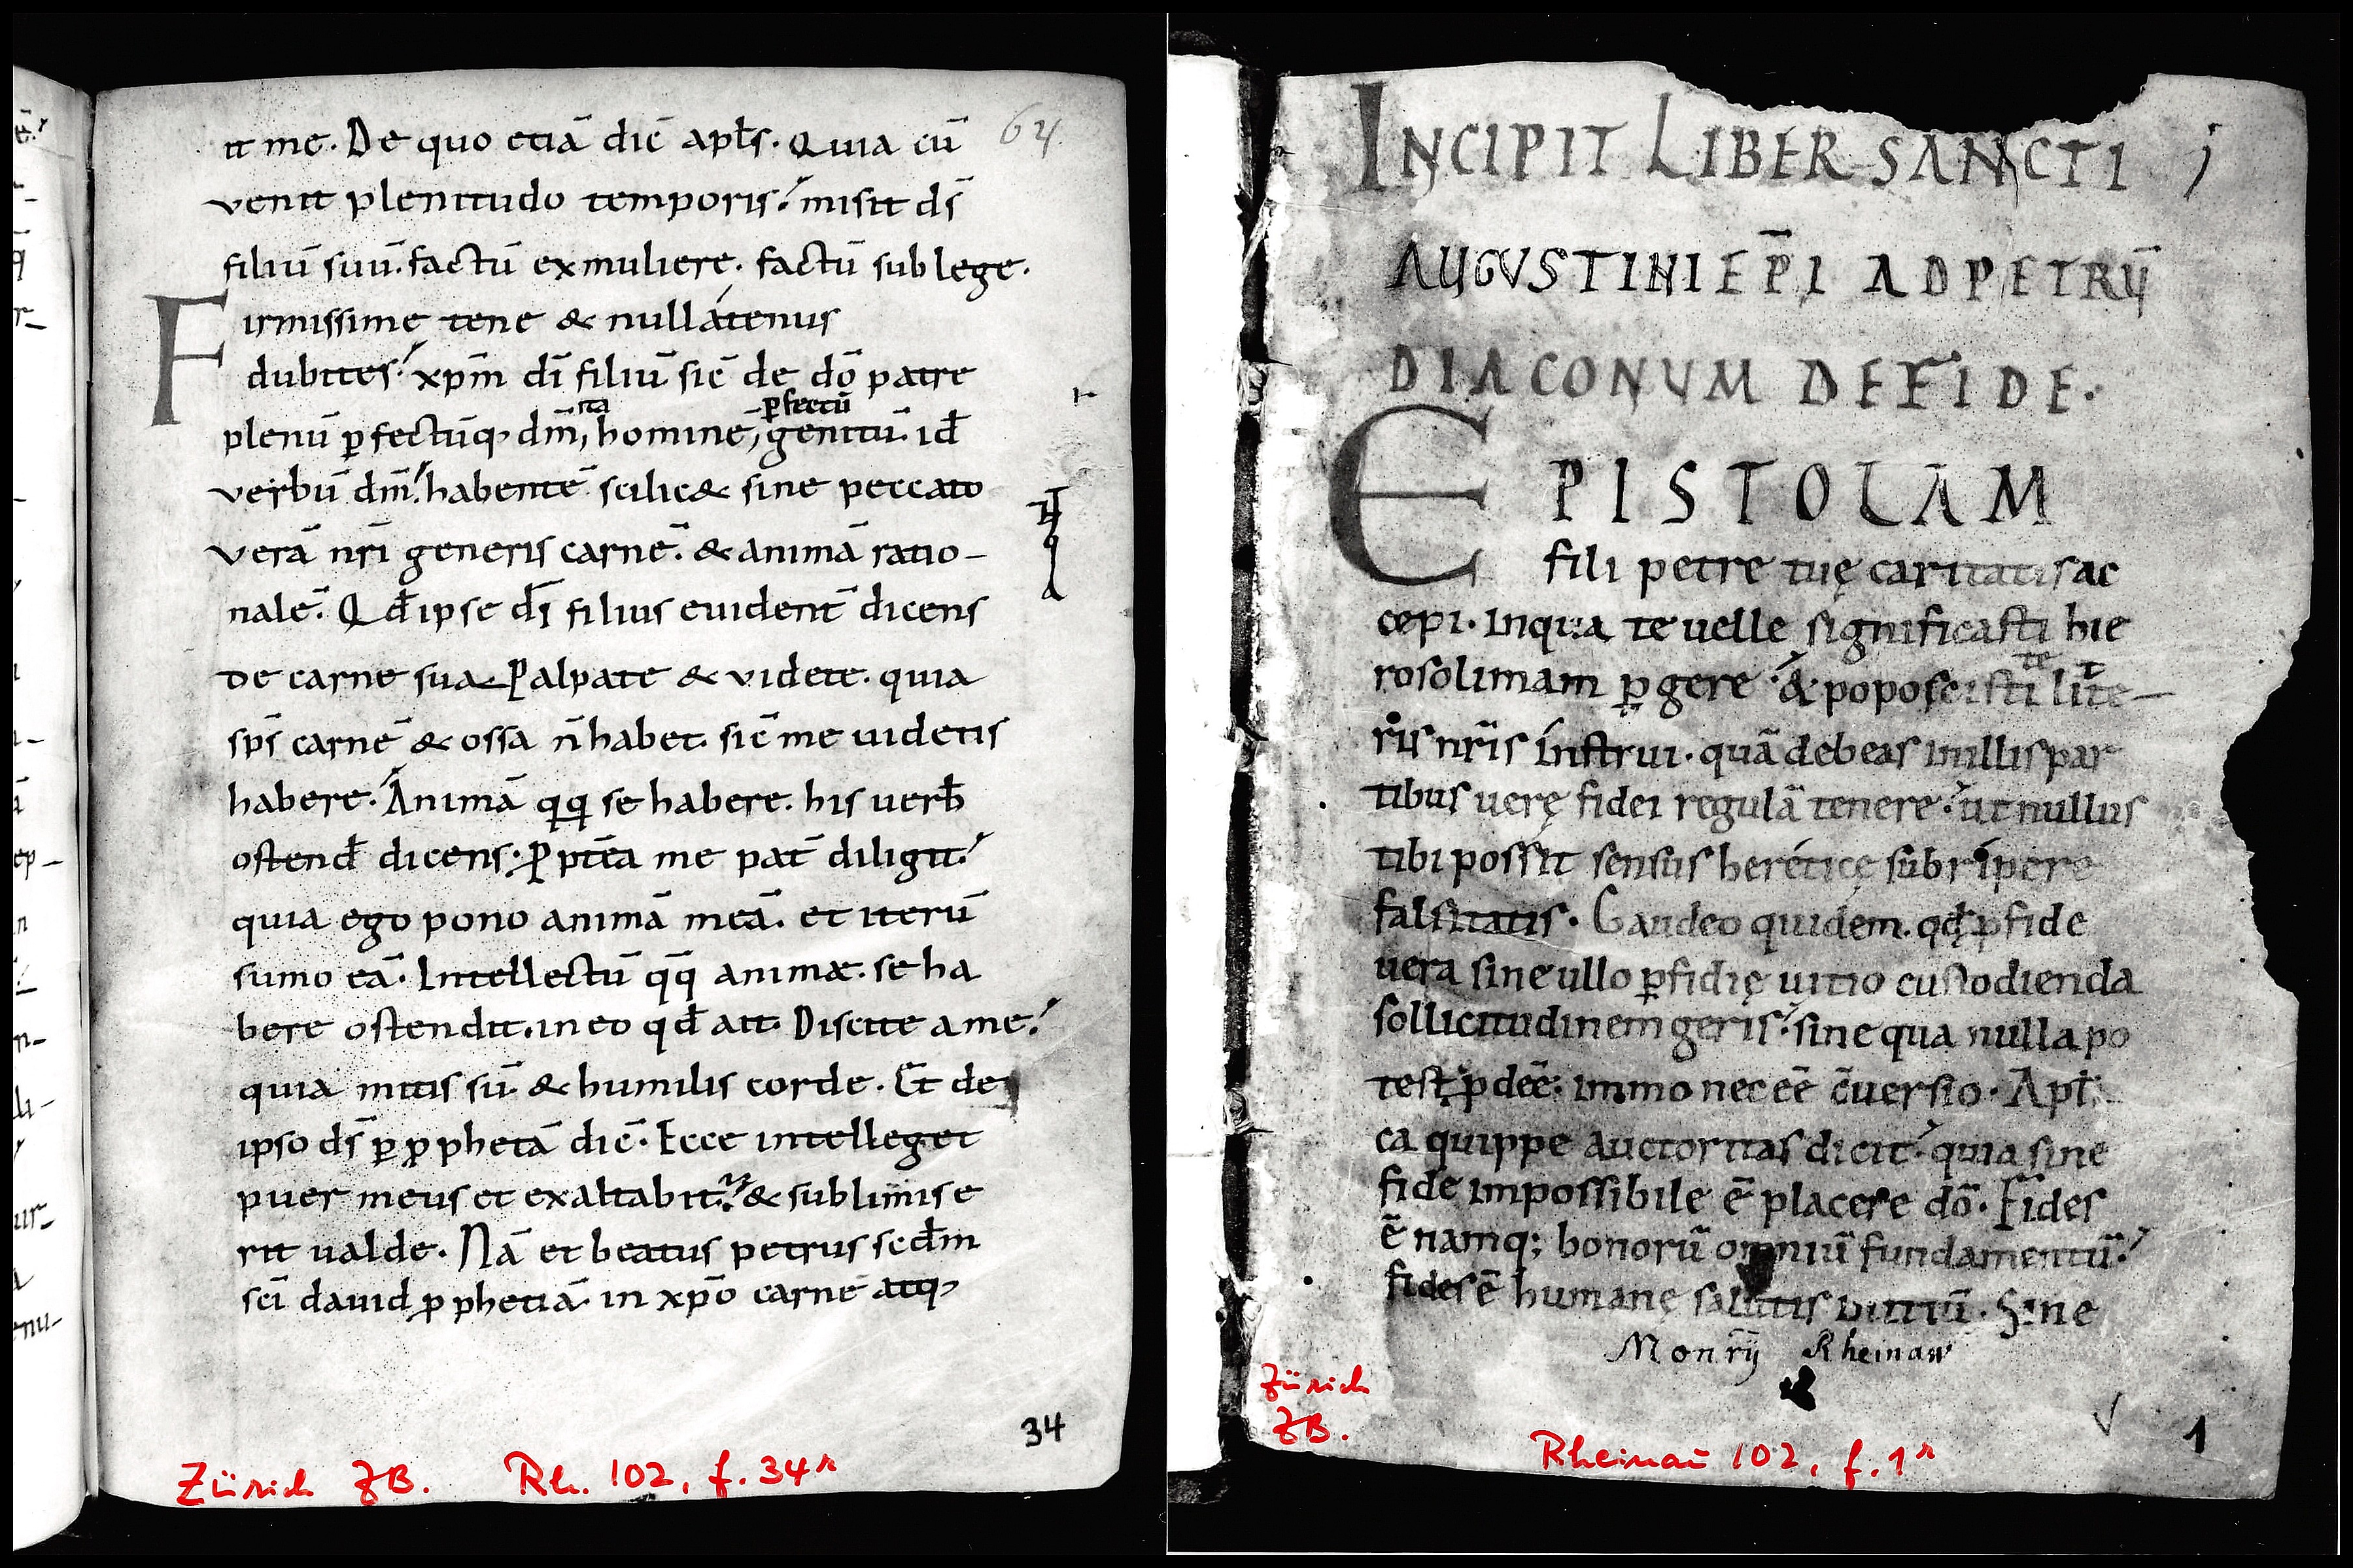 it me. De quo etiā dic̄ apłs. Quia cū
64
venit plenitudo temporis. misit ds̄
filiū suū. factū ex muliere. factū sub lege.
Firmissime tene & nullátenus
dubites. xp̄m dī filiū sic̄ de dō patre
ita p̲fectū
plenū p̲fectūq, dm̄, homine, genitū. id̄
verbū dm̄. habentē scilic& sine peccato
verā nr̄i generis carnē. & animā ratio-
nalē. Qd̄ ipse ds̄ filius euident̄ dicens
de carne sua. Palpate & videte. quia
sps̄ carnē & ossa n̄ habet. sic̄ me uidetis
habere. Animā qq se habere. his verb̄
ostend̄ dicens. Pptēa me pat̄ diligit.
quia ego pono animā meā. et iterū
sumo eā. Intellectū qq̄ animæ. se ha
bere ostendit. in eo qd̄ ait. Discite a me.
quia mitis sū. & humilis corde. Et de
ipso ds̄ p̲ pphetā dic̄. Ecce intelleget
puer meus et exaltabit. & sublimise
rit ualde. Nā et beatus petrus secd̄m
sc̄i dauid pphetiā. in xp̄o carnē atq,
34
Zürich ZB. Rh. 102, f. 34r
INCIPIT LIBER SANCTI
AUGUSTINI EP̄I AD PETRŪ
DIACONUM DE FIDE.
EPISTOLAM
fili petre tuę caritatis ac
cepi. Inqua te uelle significasti hie
rosolimam p̲gere. & poposcisti litte-
ris nr̄is instrui. quā debeas in illis par
tibus uerę fidei regulā tenere. ut nullus
tibi possit sensus heréticę subripere
falsitatis. Gaudeo quidem. qd̄ p fide
uera sine ullo p̲fidię uitio custodienda
sollicitudinem geris. sine qua nulla po
test pdeē. immo nec eē c̄uersio. Apł
ca quippe auctoritas dicit. quia sine
fide impossibile ē placere dō. Fides
ē namq; bonorū omniū fundamentū.
fides ē humanę salutis initiū. Sine
Monrij Rheinaw
Zürich
ZB.
Rheinau 102, f. 1r
1